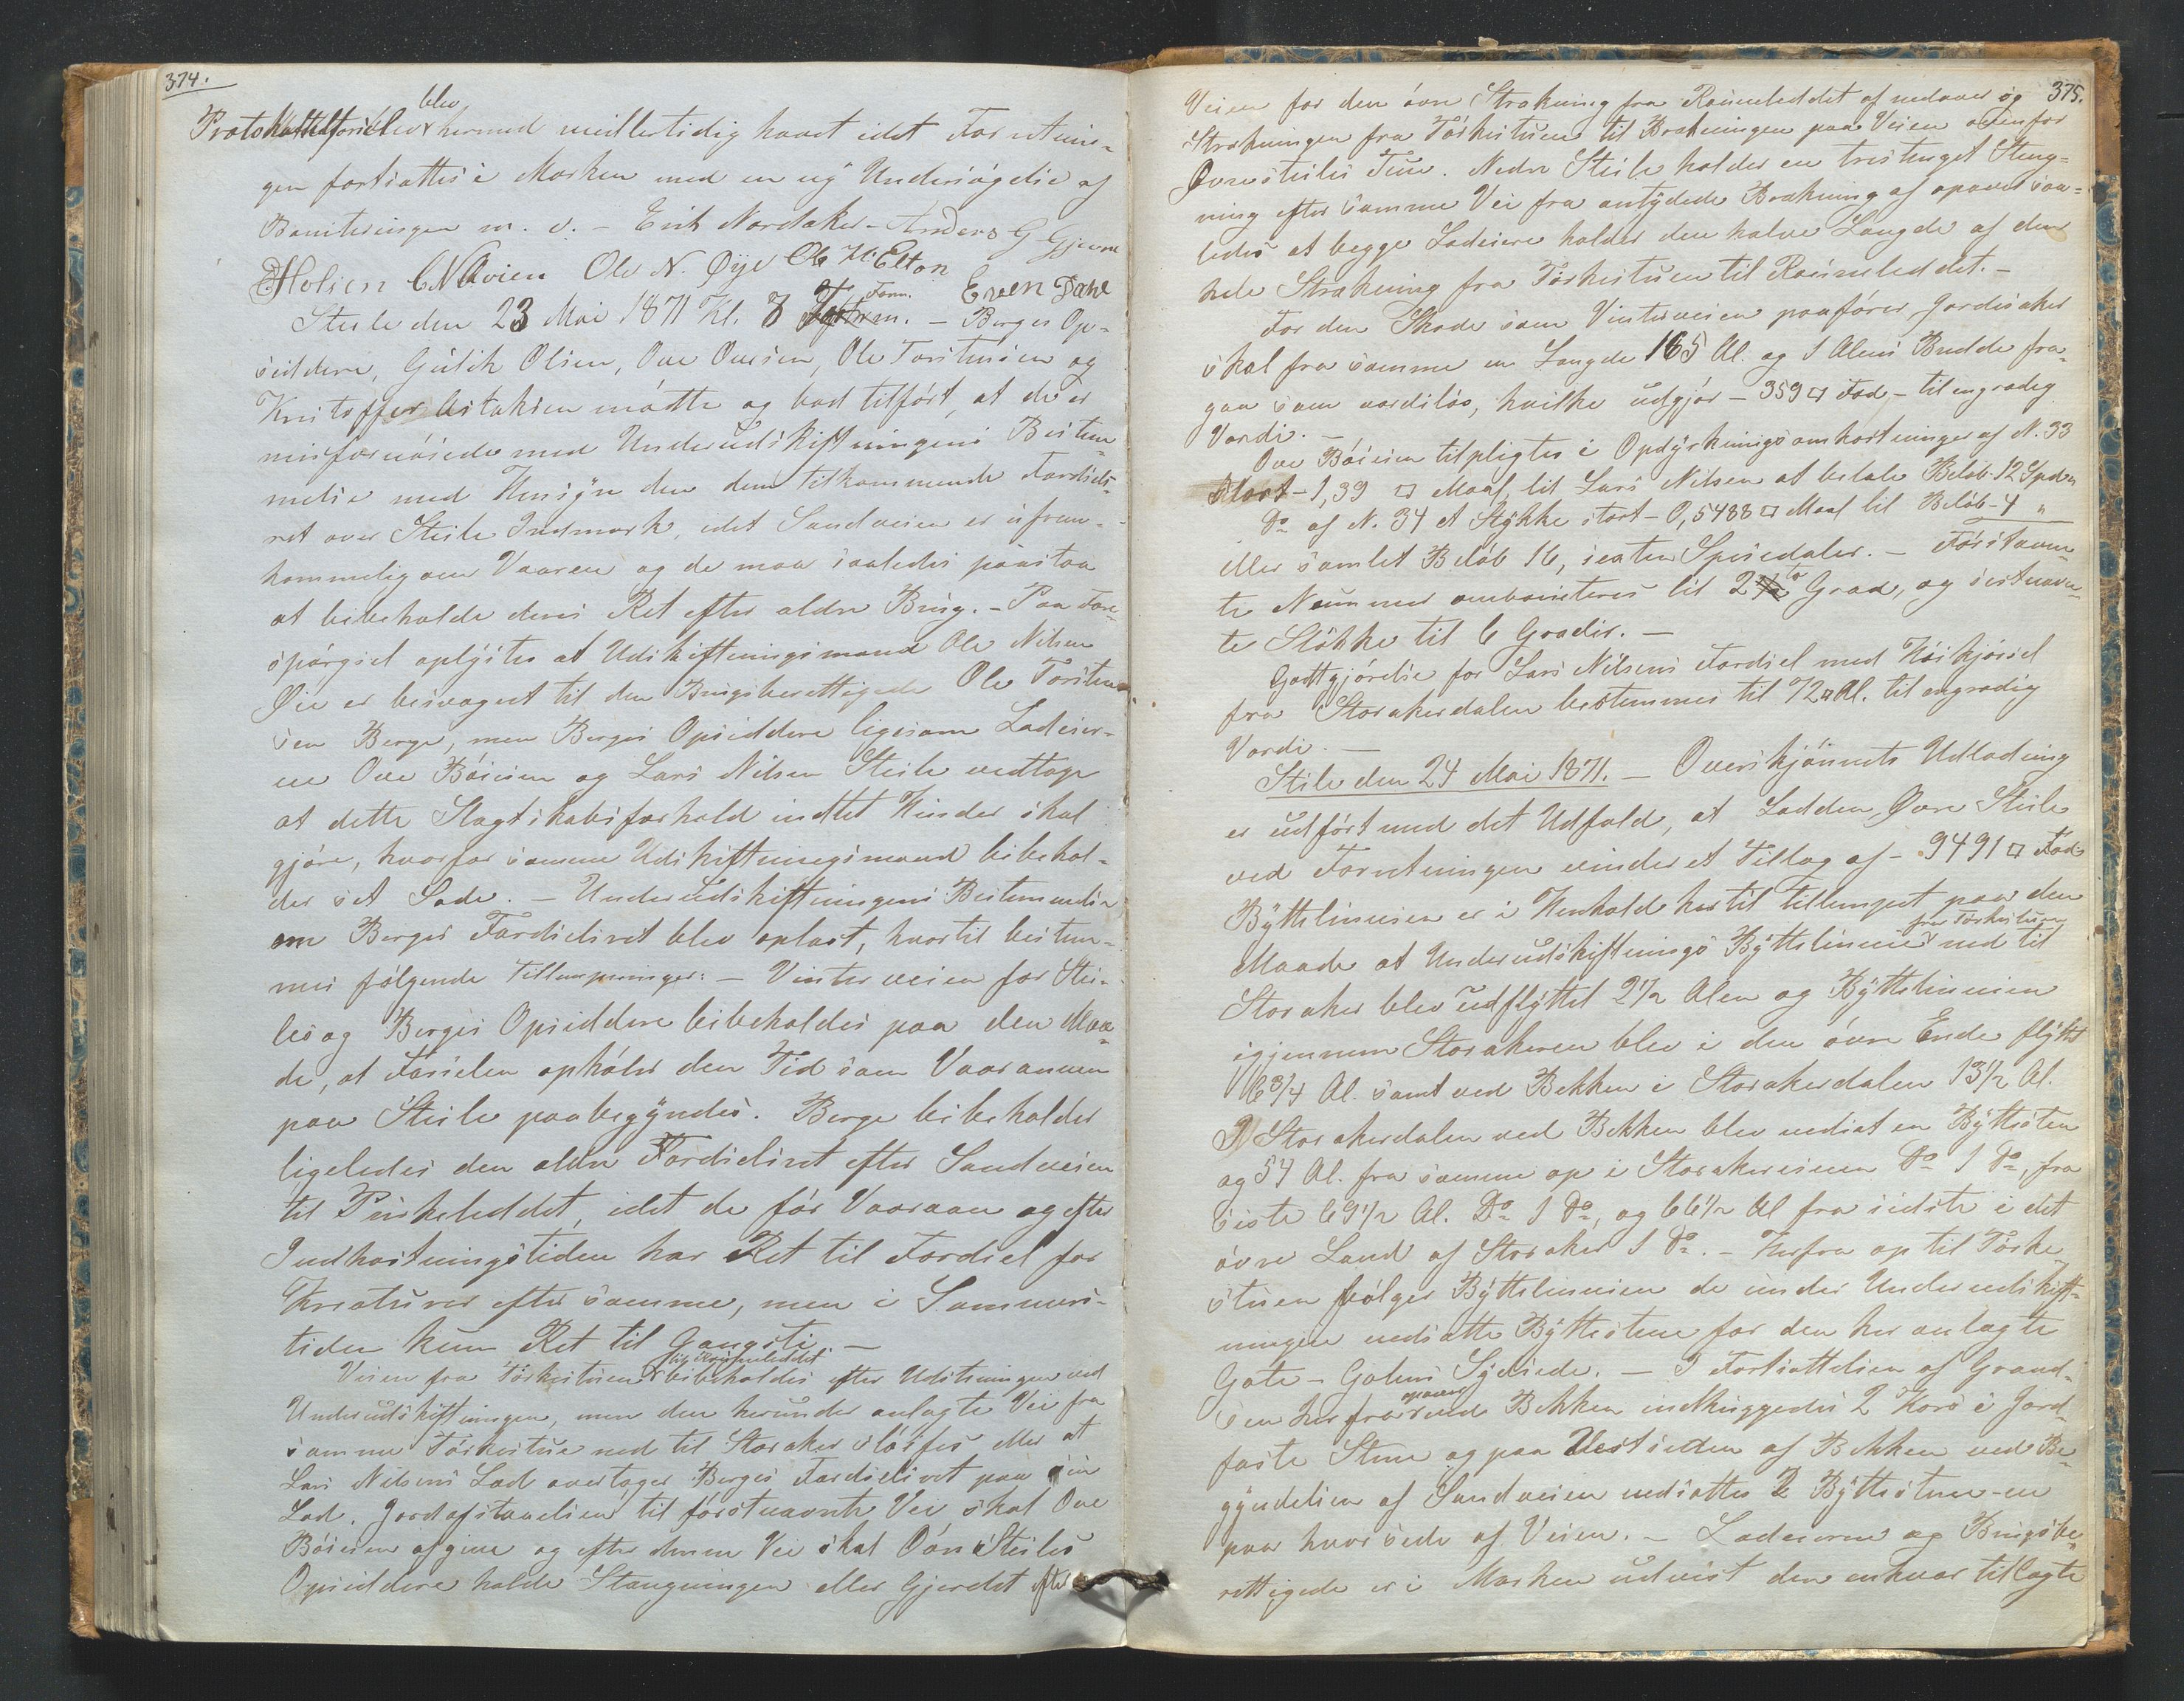 374.
Protokoltilførsler blev hermed midlertidig hævet idet Forretnin-
gen fortsattes i Marken med en ny Undersøgelse af
Boniteringen m. v. – Erik Nordaker – Anders G Gjevre
Holien C N Ovien Ole N. Øye Ole H. Elton Even Dahl
Steile den 23 Mai 1871 Kl. 8 Form. – Berges Op-
siddere, Gulik Olsen, Ove Ovesen, Ole Torstensen og
Kristoffer Astaksen mødte og bad tilført, at de er
misfornøiede med Underudskiftningens Bestem-
melse med Hensyn den dem tilkommende Færdsels-
ret over Steile Indmark, idet Sandveien er ufrem-
kommelig om Vaaren og de maa saaledes paastaa
at beholde deres Ret efter ældre Brug. – Paa Fore-
spørgsel oplystes at Udskiftningsmand Ole Nilsen
Øie er besvogret til den Brugsberettigede Ole Torsten-
sen Berge, men Berges Opsiddere ligesom Lodeier-
ne Ove Bøiesen og Lars Nilsen Steile vedtoge
at dette Slægtskabsforhold intet Hinder skal
gjøre, hvorfor samme Udskiftningsmand beihol-
der sit Sæde. – Underudskiftningens Bestemmelse
om Berges Færdselsret blev oplæst, hvortil bestem-
mes følgende Tillempninger: – Vinterveien for Stei-
les og Berges Opsiddere beibeholdes paa den Maa-
de, at Færselen ophører den Tid som Vaaraannen
paa Steile paabegyndes. Berge beibeholder
ligeledes den ældre Færdselsret efter Sandveien
til Purkeleddet, idet de før Vaaraan og efter
Indhøstningstiden har Ret til Færdsel for
Kreaturer efter samme, men i Sommers-
tiden kun Ret til Gangsti –
Veien fra Tørkestuen til Rounleddet beibeholdes efter Udstikningen ved
Underudskiftningen, men den herunder anlagte Vei fra
samme Tørkestue ned til Storaker sløifes eller at
Lars Nilsens Lod overtager Berges Færdselsret paa sin
Lod. Jordafstaaelsen til førstnævnte Vei skal Ove
Bøiesen afgive og efter denne Vei skal Øvre Steiles
Opsiddere holde Stængningen eller Gjerdet efter
375.
Veien for den øvre Strækning fra Rounleddet af nedover og
Strækningen fra Tørkestuen til Brækningen paa Veien ovenfor
Øvresteiles Tune. Nedre Steile holder en trestenget Steng-
ning efter samme Vei fra antydede Brækning af opover saa-
ledes at begge Lodeiere holder den halve Længde af den
hele Strækning fra Tørkestuen til Rounleddet. –
For den Skade som Vinterveien paafører Jordisaker
skal fra samme en Længde 165 Al. og 1 Alens Bredde fra-
gaa som værdiløs, hvilke udgjør – 359 □ Fod – til en gradig
Værdi. –
Ove Bøiesen tilpligtes i Opdyrkningsomkostninger af N. 33
Stort – 1,39 □ Maal, til Lars Nilsen at betale Beløb 12 Spdr
Do af N. 34 et Stykke stort – 0,5488 □ Maal til Beløb – 4 "
eller samlet Beløb 16, sexten Speciedaler. – Førstnævn-
te Nummer ombonitères til 2 to Grad, og sistnævn-
te Støkke til 6 Grader. –
Godtgjørelse for Lars Nilsens Færdsel med Høikjørsel
fra Storakerdalen bestemmes til 72 □ Al. til engradig
Værdi. –
Steile den 24 Mai 1871. – Overskjønnets Udlodning
er udført med det Udfald, at Lodden, Øvre Steile
ved Forretningen vinder et Tillæg af – 9491 □ Fod
Byttelinien er i Henhold hertil tillempet paa den
Maade at Underudskiftnings Byttelinie fra Tørkestuen ned til
Storaker blev udflyttet 2 1/2 Alen og Byttelinien
igjennem Storakeren blev i den øvre Ende flyttet
6 3/4 Al. samt ved Bekken i Storakerdalen 13 1/2 Al.
I Storakerdalen ved Bekken blev nedsat en Byttesten
og 54 Al. fra samme op i Storakerrenen Do 1 Do, fra
siste 69 1/2 Al. Do 1 Do, og 66 1/2 Al fra sidste i det
øvre Land af Storaker 1 Do. – Herfra op til Tørke-
stuen følger Byttelinien de under Underudskift-
ningen nedsatte Byttestene for den her anlagte
Gate – Gatens Sydside. – I Fortsættelsen af Grænd-
sen herfra opover ved Bekken indhuggedes 2 Kors i Jord-
faste Stene og paa Vestsiden af Bekken ved Be-
gyndelsen af Sandveien nedsattes 2 Byttestene – en
paa hver Side af Veien. – Lodeierne og Brugsbe-
rettigede er i Marken udvist den enhver tillagte